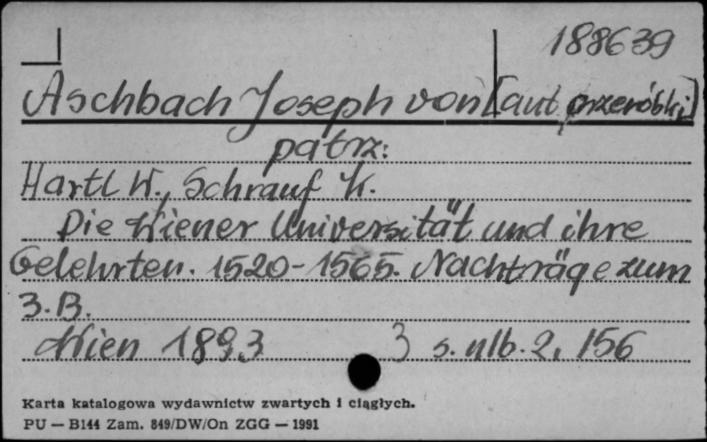 188639
Aschbach Joseph von [aut przeróbki]
patrz:
Hartl W., Schrauf K.
Die Wiener Universität und ihre
Gelehrten. 1520-1565. Nachträge zum
3.B.
Wien 1893 3 s. nlb. 2, 156
Karta katalogowa wydawnictw zwartych i ciągłych.
PU — B144 Zam. 849/DW/On ZGG — 1991